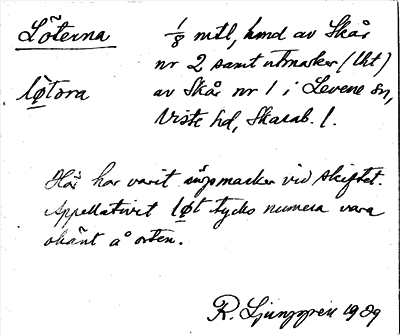 Löterna
1/8 mtl, hmd av Skår
nr 2 samt utmarker (lht)
løtora
av Skår nr 1 i Levene sn,
Viste hd, Skarab. l.
Här har varit slåpmarker vid skiftet.
Appellativet løt tycks numera vara
okänt å orten.
R. Ljunggren 1989